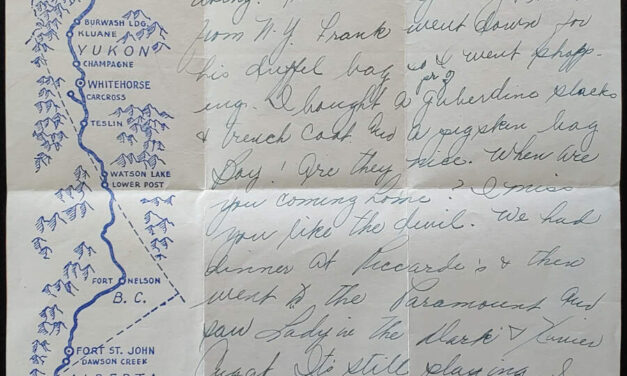 BURWASH LDG.
KLUANE
YUKON
CHAMPAGNE
WHITEHORSE
CARCROSS
TESLIN
WATSON LAKE
LOWER POST
FORT NELSON
B.C.
FORT ST. JOHN
DAWSON CREEK
ALBERTA
from N.Y. Frank went down for
his duffel bag so I went shopp-
pr of
ing. I bought a gaberdine slacks
& trench coat and a pigskin bag
Boy! are they nice. When are
you coming home? I miss
you like the devil. We had
dinner at Riccardi's & then
went to the Paramount and
saw Lady in the Dark &
It's still playing. I